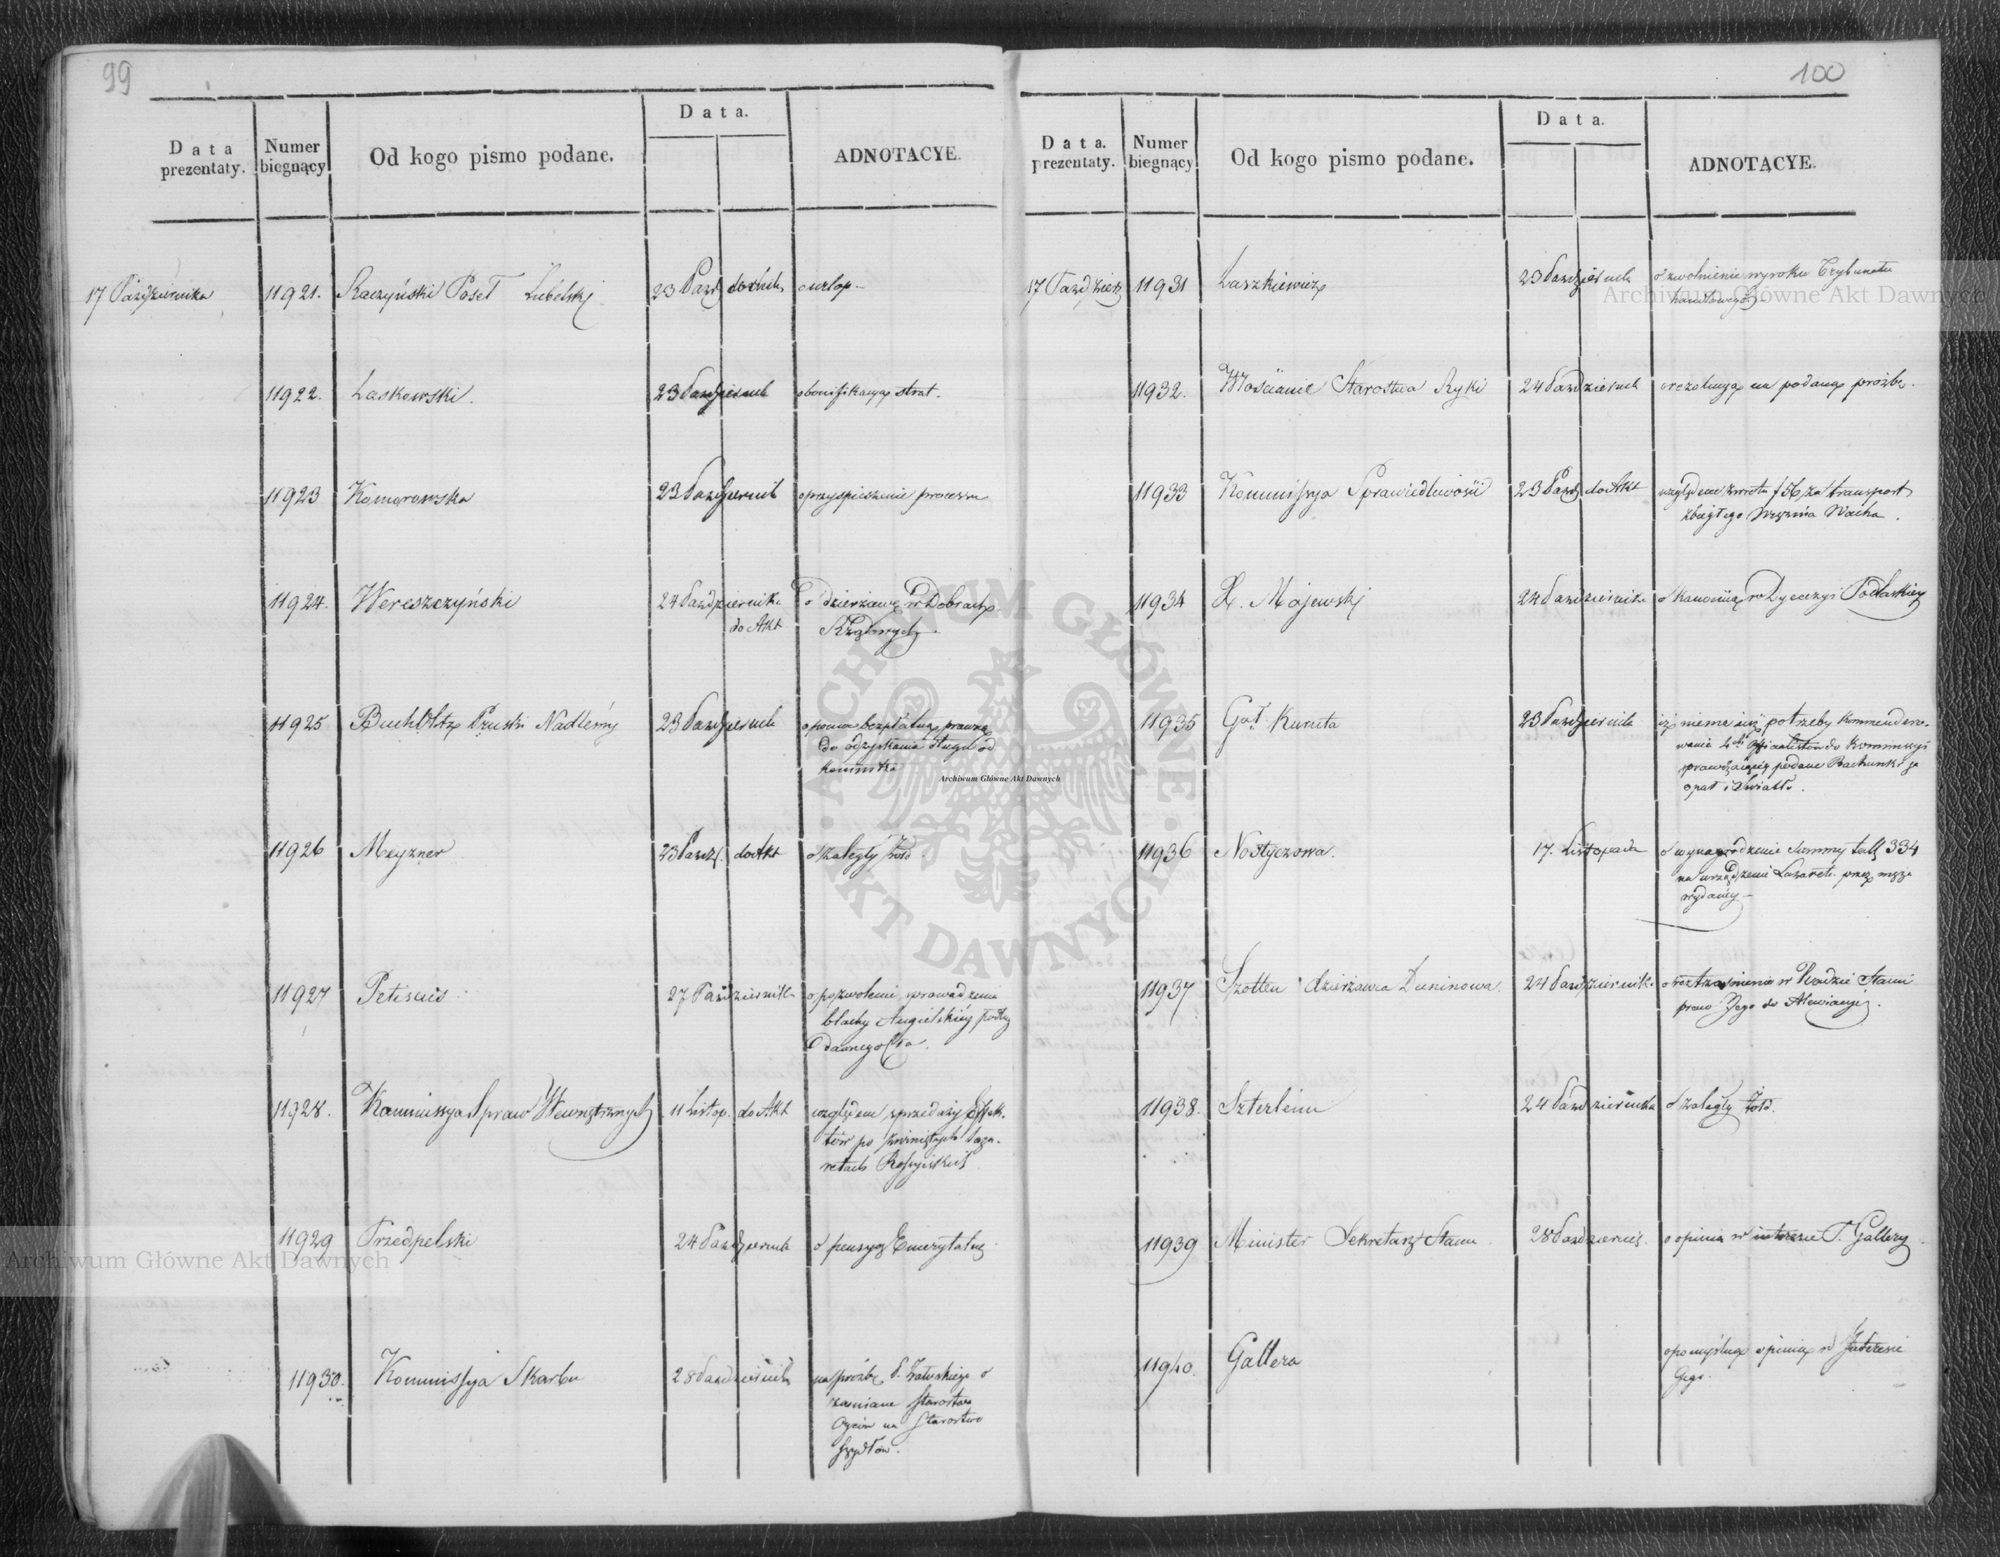 99
Data prezentaty.
Numer biegnący
Od kogo pismo podane.
Data.
ADNOTACYE.
17 Października 11921. Raczyński Poseł Lubelski 23 Paźd do Akt o urlop
11922. Laskowski. 23 Październik o bonifikacyę strat.
11923 Komorowska 23 Październik o przyspieszenie processu
11924. Wereszczyński 24 Październik o dzierżawę w Dobrach
do Akt Rządowych
11925 Buchholtz Pruski Nadleśny 23 Październik
do odzyskania długu od
11926 Meyzner 23 Paźdz. do Akt o zaległy żołd
11927 27 Październik o pozwolenie sprowadzenia
blachy Angielskiej podług
dawnego Cła.
11928. Kommissya Spraw Wewnętrznych 11 Listop. do Akt względem sprzedaży Effek-
tów po zwiniętych Laza-
retach Rossyjskich
11929 Trzedpelski 24 Październik o pensyę Emerytalną
11930. Kommissya Skarbu 28 Październik na prośbę P. Załuskiego o
zamianę Starostwa
na Starostwo
Szydłów.
100
Data. prezentaty.
Numer biegnący
Od kogo pismo podane.
Data.
ADNOTACYE.
17 Paździer 11931 Laszkiewicz 23 Październik o zwolnienie wyroku Trybunału
handlowego
11932. Włościanie Starostwa Ryki 24 Październik o rezolucyą na podaną prośbę.
11933 Kommissya Sprawiedliwości 23 Paźdz do Akt względem zwrotu f 56 za transport
zbiegłego Więźnia
11934 X. Majewski 24 Październik o Kanonią w Dyecezyi Podlaskiey
11935 Gał. Kuruta 23 Październik iż niema już potrzeby kommendero-
wania 2ch Officialistów do Kommissyi
sprawdzającey podane Rachunki za
opał i światło.
11936 Nostyczowa. 17. Listopada o wynagrodzenie Summy tall 334
na urządzenie Lazaretu przez męża
wydaney
11937 Szotten dzierżawca Duninowa. 24 Październik o roztrząśnienie w Radzie Stanu
praw Jego do
11938. Szterlenn 24 Października o zaległy żołd.
11939 Minister Sekretarz Stanu. 28 Październik o opinię w interesie P. Gallery
11940. Gallera o pomyślną opinię w Interesie
Jego.
Archiwum Główne Akt Dawnych
Archiwum Główne Akt Dawnych
Archiwum Główne Akt Dawnych
ARCHIWUM GŁÓWNE · AKT DAWNYCH ·